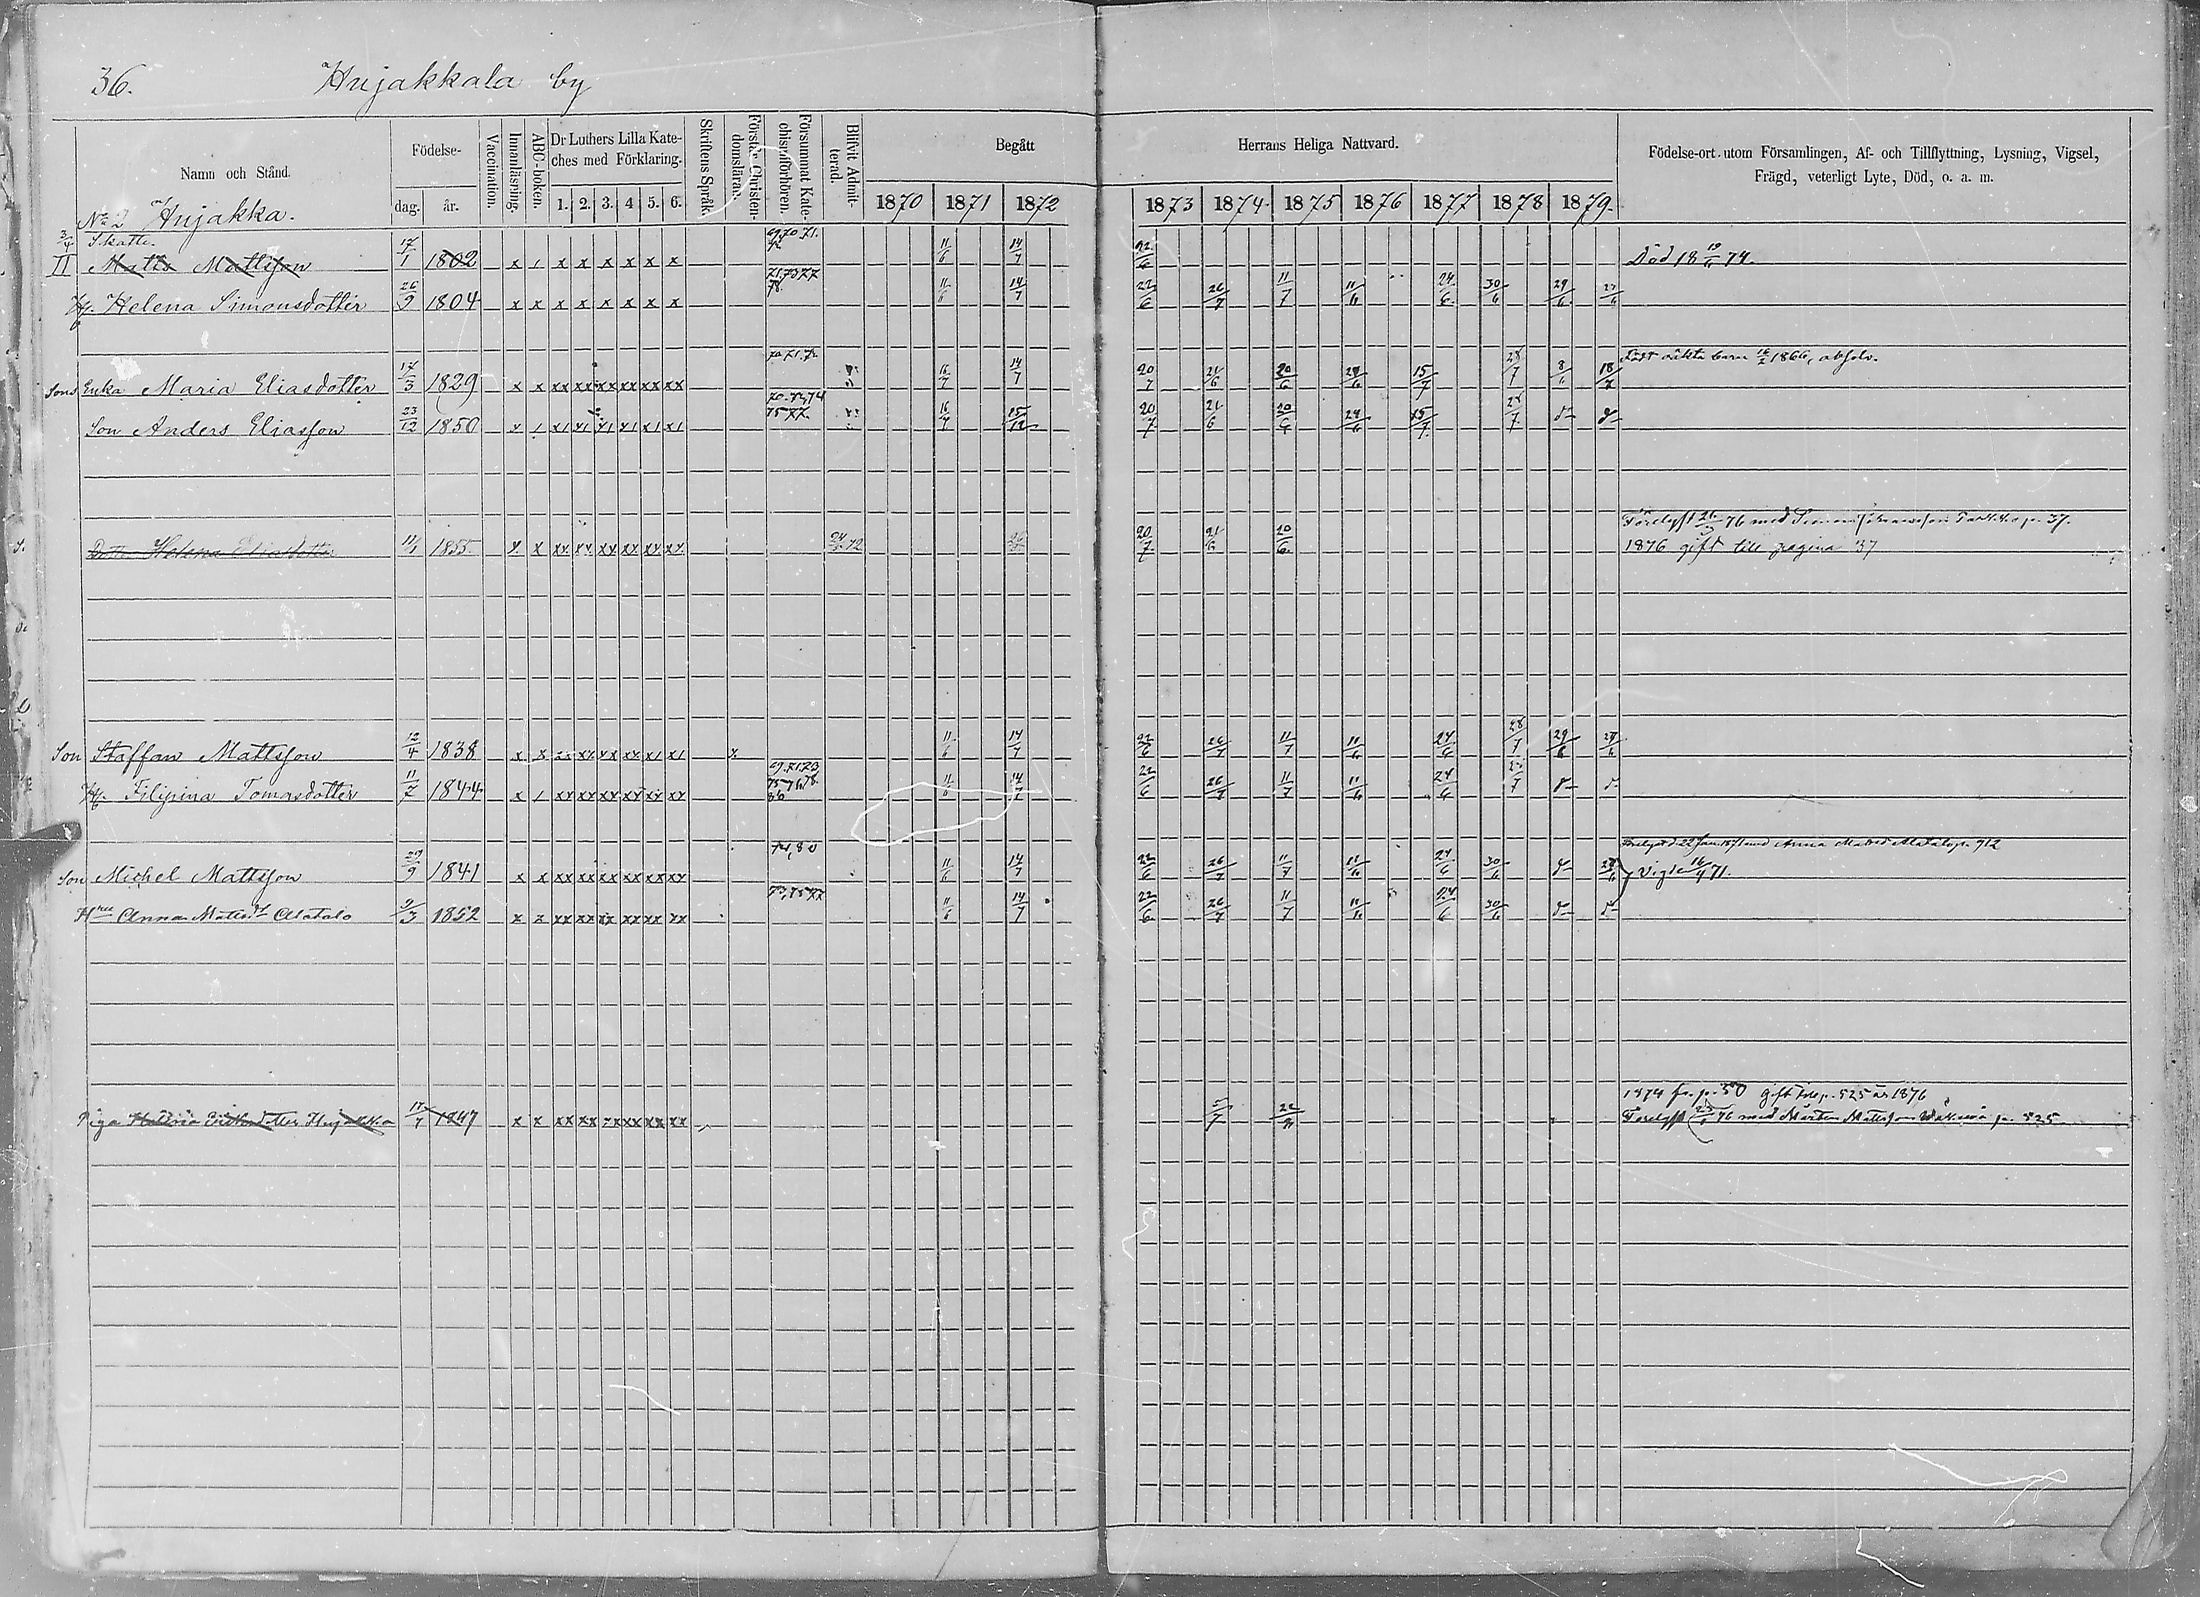 36. Hujakkala by
Namn och Stånd.
Födelse-
dag. år.
Vaccination.
Innanläsning.
ABC-boken.
Dr Luthers Lilla Kate-
ches med Förklaring.
1. 2. 3. 4 5. 6.
Skriftens Språk.
Förstår Christen-
domsläran.
Försummat Kate-
chismiförhören.
Blifvit Admit-
terad.
Begått
1870 1871 1872
Herrans Heliga Nattvard.
1873 1874. 1875 1876 1877 1878 1879.
Födelse-ort utom Församlingen, Af- och Tillflyttning, Lysning, Vigsel,
Frägd, veterligt Lyte, Död, o. a. m.
No 2 Hujakka.
3/4 Skatte.
II Matts Mattsson 17/1 1802 x 1 x x x x x x 69.70.71. 11/6 14/7 22/6 Död 18 10/6 74.
H. Helena Simonsdotter 26/9 1804 x x x x x x x x 71.73.77 78. 11/6 14/7 22/6 26/7 11/7 11/6 24/6 30/6 29/6 27/6
Sons Enka Maria Eliasdotter 17/3 1829 x x xx xx xx xx xx xx 70.71.72 16/7 14/7 20/7 21/6 20/6 29/6 15/7 28/7 8/6 18/7 1866, absolv.
Son Anders Eliasson 23/12 1850 x 1 x1 x1 x1 x1 x1 x1 75.77. 16/7 15/12 20/7 21/6 20/6 29/6 15/7 28/7
Dotter Helena Eliasdotter 11/1 1855 x x xx xx xx xx xx xx 72 20/7 21/6 20/6 Förelyst 76 med Simon p. 37.
1876 gift till pagina 37
Son Staffan Mattsson 12/4 1838 x x xx xx xx xx x1 x1 x 11/6 14/7 22/6 26/7 11/7 11/6 24/6 28/7 29/6 29/6
H. Filipina Tomasdotter 11/7 1844 x 1 xx xx xx xx xx xx 69.71.73 11/6 14/7 22/6 26/7 11/7 11/6 24/6
Son Michel Mattsson 29/9 1841 x x xx xx xx xx xx xx 74,80 11/6 14/7 22/6 26/7 11/7 11/6 24/6 30/6 22 Jan. 1871 med Anna Matsd p. 912
Vigde 16/4 71.
Hru Anna Mattsdt Alatalo 9/3 1852 x x xx xx xx xx xx xx 11/6 14/7 22/6 26/7 11/7 11/6 24/6 30/6
1874 fr. p. 50 gift p. 525 år 1876
Piga Hujakka 1847 x x xx xx xx xx xx Förelyst 76 med Mårten Mattsson p. 525